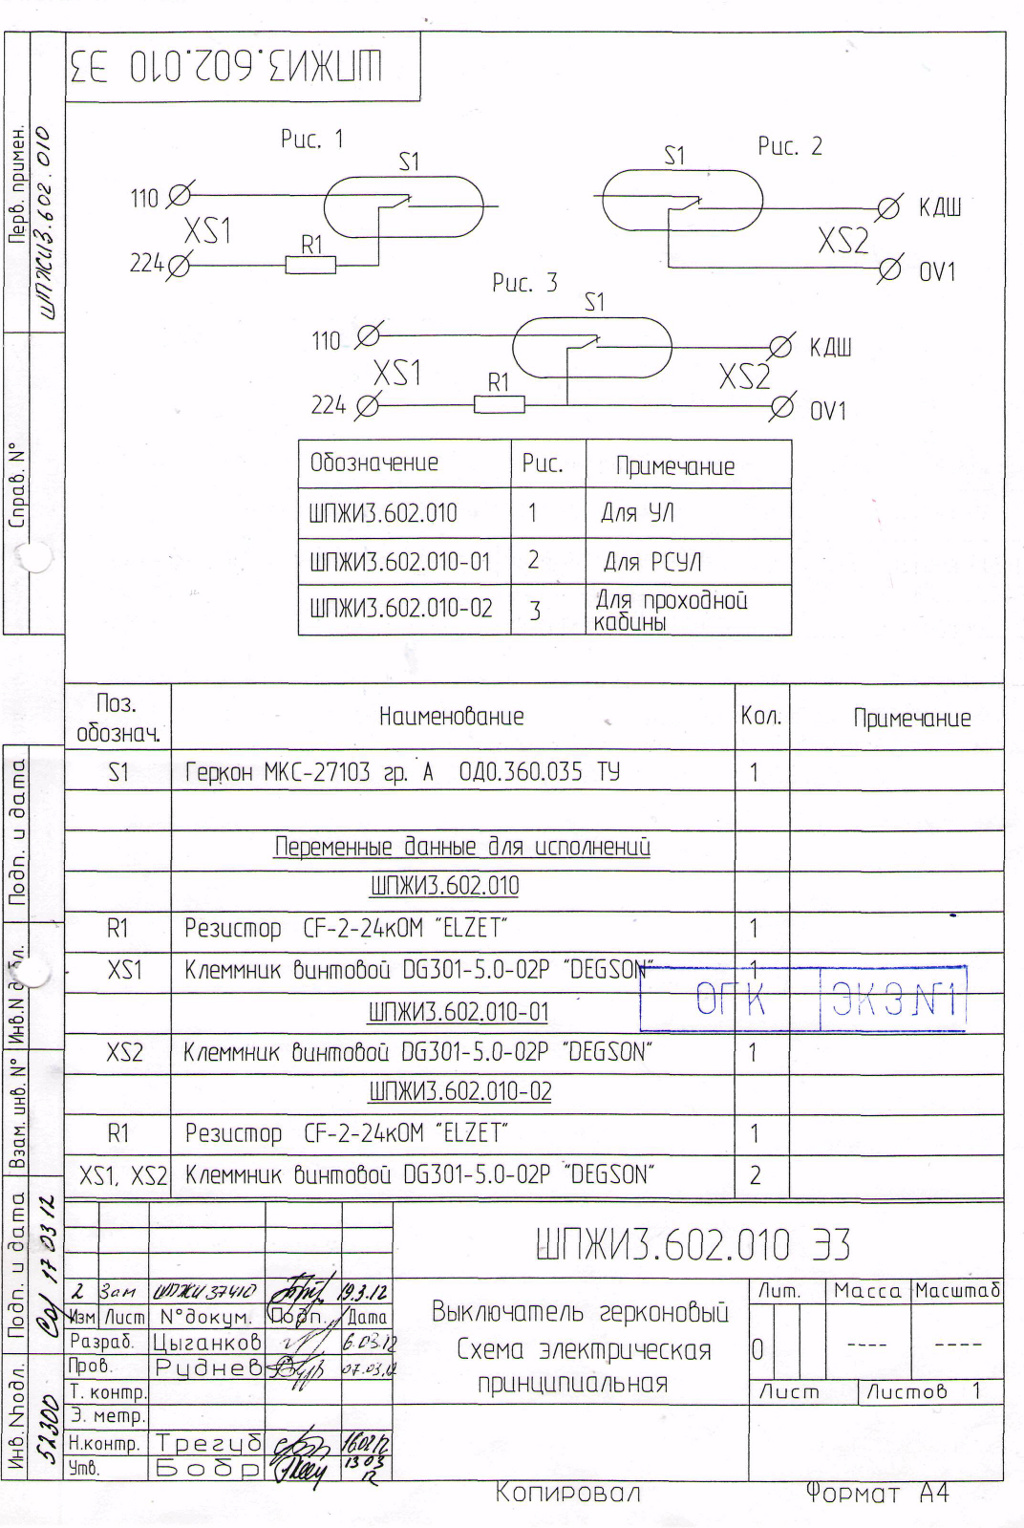 ШПЖИ3.602.010 Э3
Перв. примен.
ШПЖИ3.602.010
Справ. N°
Рис. 1
S1
110
XS1
R1
224
Рис. 2
S1
КДШ
XS2
0V1
Рис. 3
S1
110
КДШ
XS1
XS2
R1
224
0V1
Обозначение Рис. Примечание
ШПЖИ3.602.010 1 Для УЛ
ШПЖИ3.602.010-01 2 Для РСУЛ
ШПЖИ3.602.010-02 3 Для проходной
кабины
Поз.
обознач. Наименование Кол. Примечание
S1 Геркон МКС-27103 гр. А ОД0.360.035 ТУ 1
Переменные данные для исполнений
ШПЖИ3.602.010
R1 Резистор CF-2-24кОМ "ELZET" 1
XS1 Клеммник винтовой DG301-5.0-02P "DEGSON" 1
ОГК ЭКЗ.N1
ШПЖИ3.602.010-01
XS2 Клеммник винтовой DG301-5.0-02P "DEGSON" 1
ШПЖИ3.602.010-02
R1 Резистор CF-2-24кОМ "ELZET" 1
XS1, XS2 Клеммник винтовой DG301-5.0-02P "DEGSON" 2
Подп. и дата
Инв.N дубл.
Взам. инв. N°
Подп. и дата
17 03 12
Инв.Nподл.
52300
ШПЖИ3.602.010 Э3
2 Зам ШПЖИ37410 19.3.12
Изм Лист N°докум. Подп. Дата
Разраб. Цыганков 6.03.12
Пров. Руднев 07.03.12
Т. контр.
Э. метр.
Н.контр. Трегуб
Утв. Бобр 13 03
12
Выключатель герконовый
Схема электрическая
принципиальная
Лит. Масса Масштаб
0 ---- ----
Лист Листов 1
Копировал Формат А4